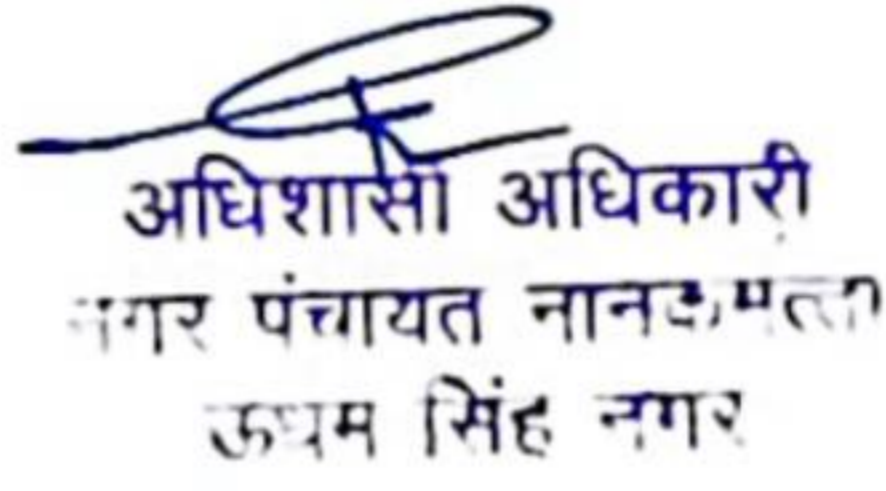 अधिशासी अधिकारी
नगर पंचायत नानकमत्ता
ऊधम सिंह नगर